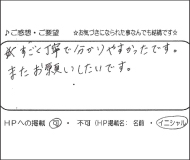 ♪ご感想・ご要望 ☆お気づきになられた事なんでも結構です☆
すごく丁寧で分かりやすかったです。
またお願いしたいです。
HPへの掲載 可 ・ 不可 (HP掲載名: 名前 ・ イニシャル